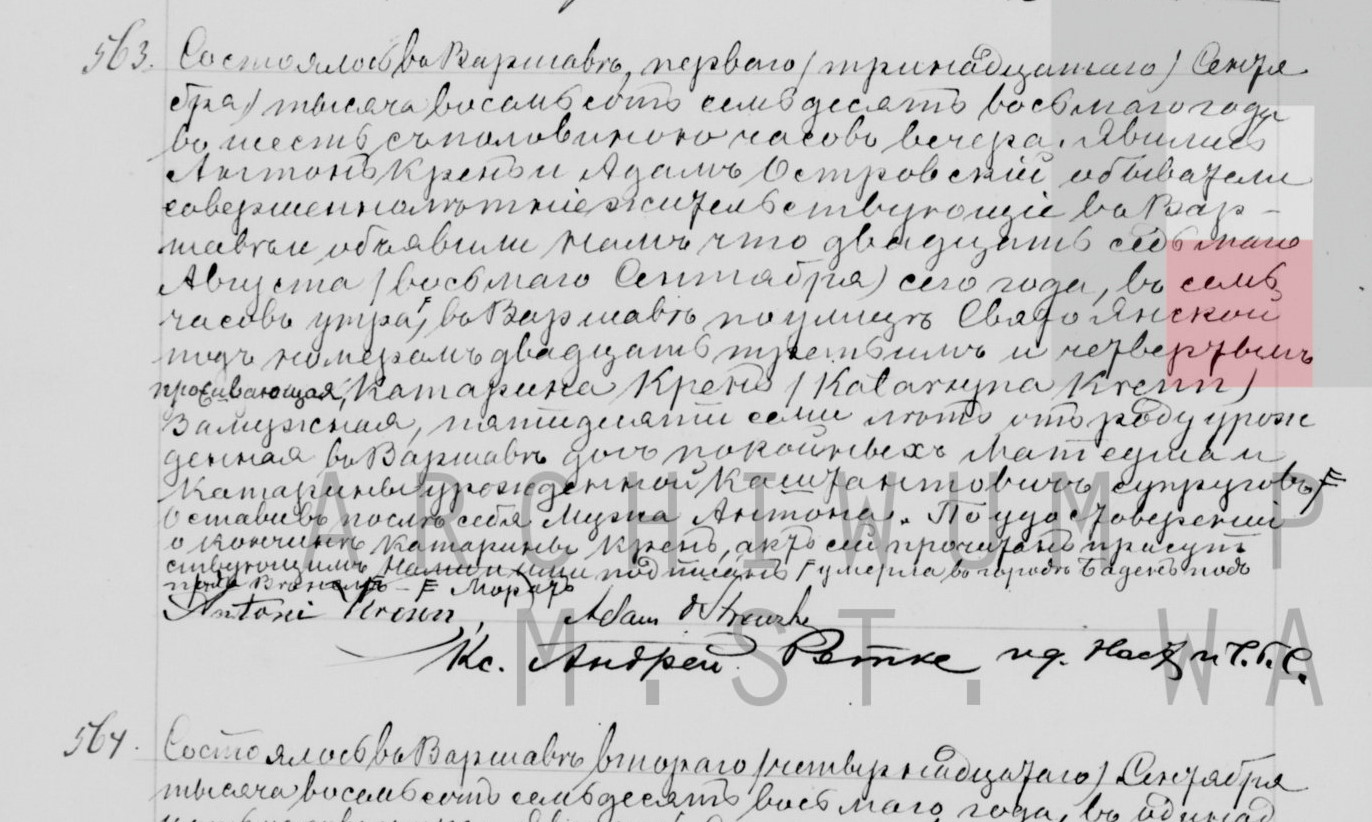 563. Состоялось въ Варшавѣ, перваго /тринадцатаго/ Сентя
бря/ тысяча восемьсотъ семьдесятъ восьмаго года
въ шесть съ половиною часовъ вечера. Явились
Антонъ Кренъ и Адамъ Островскій обыватели
совершеннолѣтніе жительствующіе въ Вар-
шавѣ и объявили намъ что двадцать седьмаго
Августа /восьмаго Сентября/ сего года, въ семь
часовъ утра, въ Варшавѣ по улицѣ Свято Янской
подъ номеромъ двадцать третьимъ и четвертымъ
проживающая, Катарина Кренъ /Katarzyna Krenn/
Замужная, пятидесяти семи лѣтъ отъ роду урож
денная въ Варшавѣ дочь покойныхъ Матеуша и
Катарины урожденной Каштантовичъ супруговъ, F
Оставивъ послѣ себя Мужа Антона. По удостовереніи
о кончинѣ Катарины Кренъ, актъ сей прочитанъ присут
ствующимъ Нами и ими подписанъ F умерла въ городѣ Баденъ подъ
F Морозъ
Antoni Krenn, Adam Ostrowski
Кс. Андрей Ретке пд. Наст. п. Ч. Г. С.
ARCHIWUM P
M.ST. WA
564. Состоялось въ Варшавѣ втораго /четырнадцатаго/ Сентября
тысяча восемьсотъ семьдесятъ восьмаго года, въ одинад